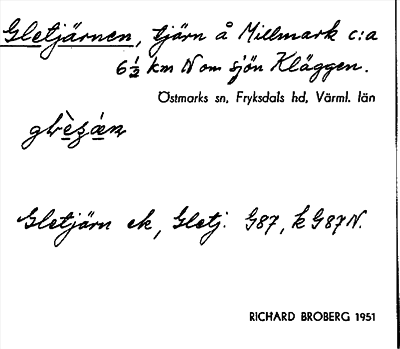 Gletjärnen, tjärn å Millmark c:a
6½ km N om sjön Kläggen.
Östmarks sn, Fryksdals hd, Värml. län
Gletjärn ek, Gletj. G87, k G87N.
RICHARD BROBERG 1951